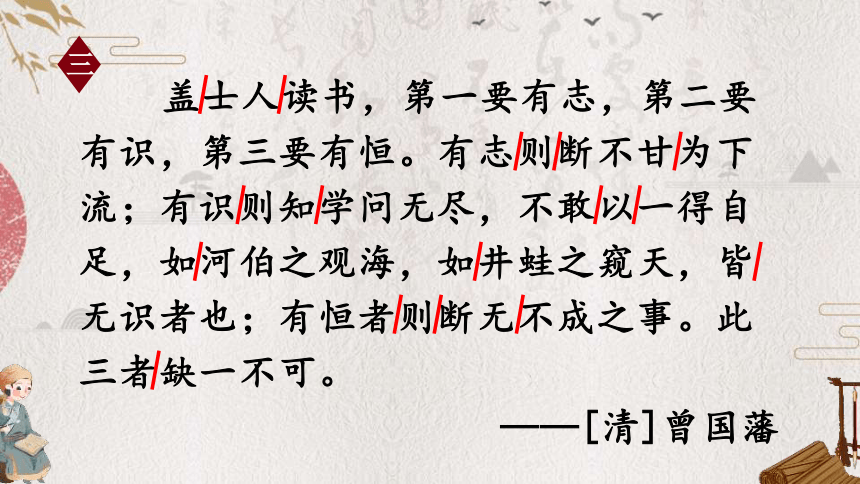 三
盖/士人/读书，第一要有志，第二要
有识，第三要有恒。有志/则/断不甘/为下
流；有识/则知/学问无尽，不敢/以/一得自
足，如/河伯之观海，如/井蛙之窥天，皆/
无识者也；有恒者/则/断无/不成之事。此
三者/缺一不可。
——[清]曾国藩